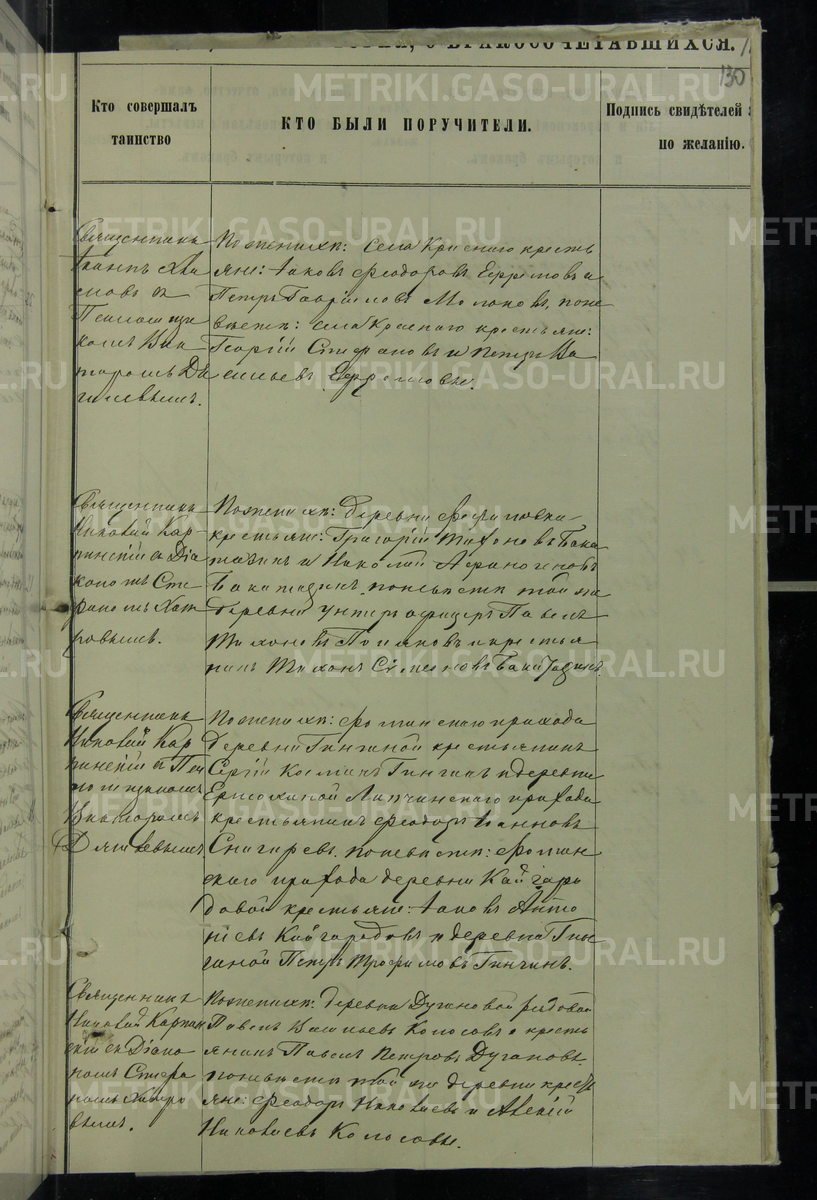 О БРАКОСОЧЕТАВШИХСЯ.
130
Кто совершалъ
таинство
КТО БЫЛИ ПОРУЧИТЕЛИ.
Подпись свидѣтелей
по желанію.
Священникъ
Іоаннъ
съ
Псаломщи
комъ Вик
торомъ Дя
гилевымъ.
По женихѣ: села Краснаго кресть
яне: Іаковъ Феодоровъ Ефремовъ и
Петръ Гавріиловъ Молоковъ, по не
вѣстѣ: села Краснаго крестьяне:
Георгій Стефановъ и Петръ Ва
сильевъ Ефремовы.
Священникъ
Николай Кар-
пинскій съ Діа
кономъ Сте
фаномъ
По женихѣ: деревни
крестьяне: Григорій Тихоновъ Бака
тазинъ и Николай Афиногеновъ
Бакатазинъ, по невѣстѣ той же
деревни унтеръ офицеръ Павелъ
Тихоновъ и крестья
нинъ Тихонъ Симеоновъ
Священникъ
Николай Кар
пинскій съ Пса
ломщикомъ
Викторомъ
Дягилевымъ.
По женихѣ: Фоминскаго прихода
деревни Гингиной крестьянинъ
Сергій Космичъ Гингинъ и деревни
Ермохиной Липчинскаго прихода
крестьянинъ Феодоръ Іоанновъ
Снигиревъ, по невѣстѣ: Фомин
скаго прихода деревни Кайгоро
довой крестьяне: Іаковъ Анто
ніевъ Кайгородовъ и деревни Гин
гиной Петръ Трофимовъ Гингинъ.
Священникъ
Николай Карпин
скій съ Діако
номъ Стефа
номъ
По женихѣ: деревни Дугановой рядовой
Павелъ Васильевъ Колосовъ и кресть
янинъ Павелъ Петровъ Дугановъ,
по невѣстѣ той же деревни кресть
яне: Феодоръ Николаевъ и Алексій
Николаевъ Колосовы.
METRIKI.GASO-URAL.RU